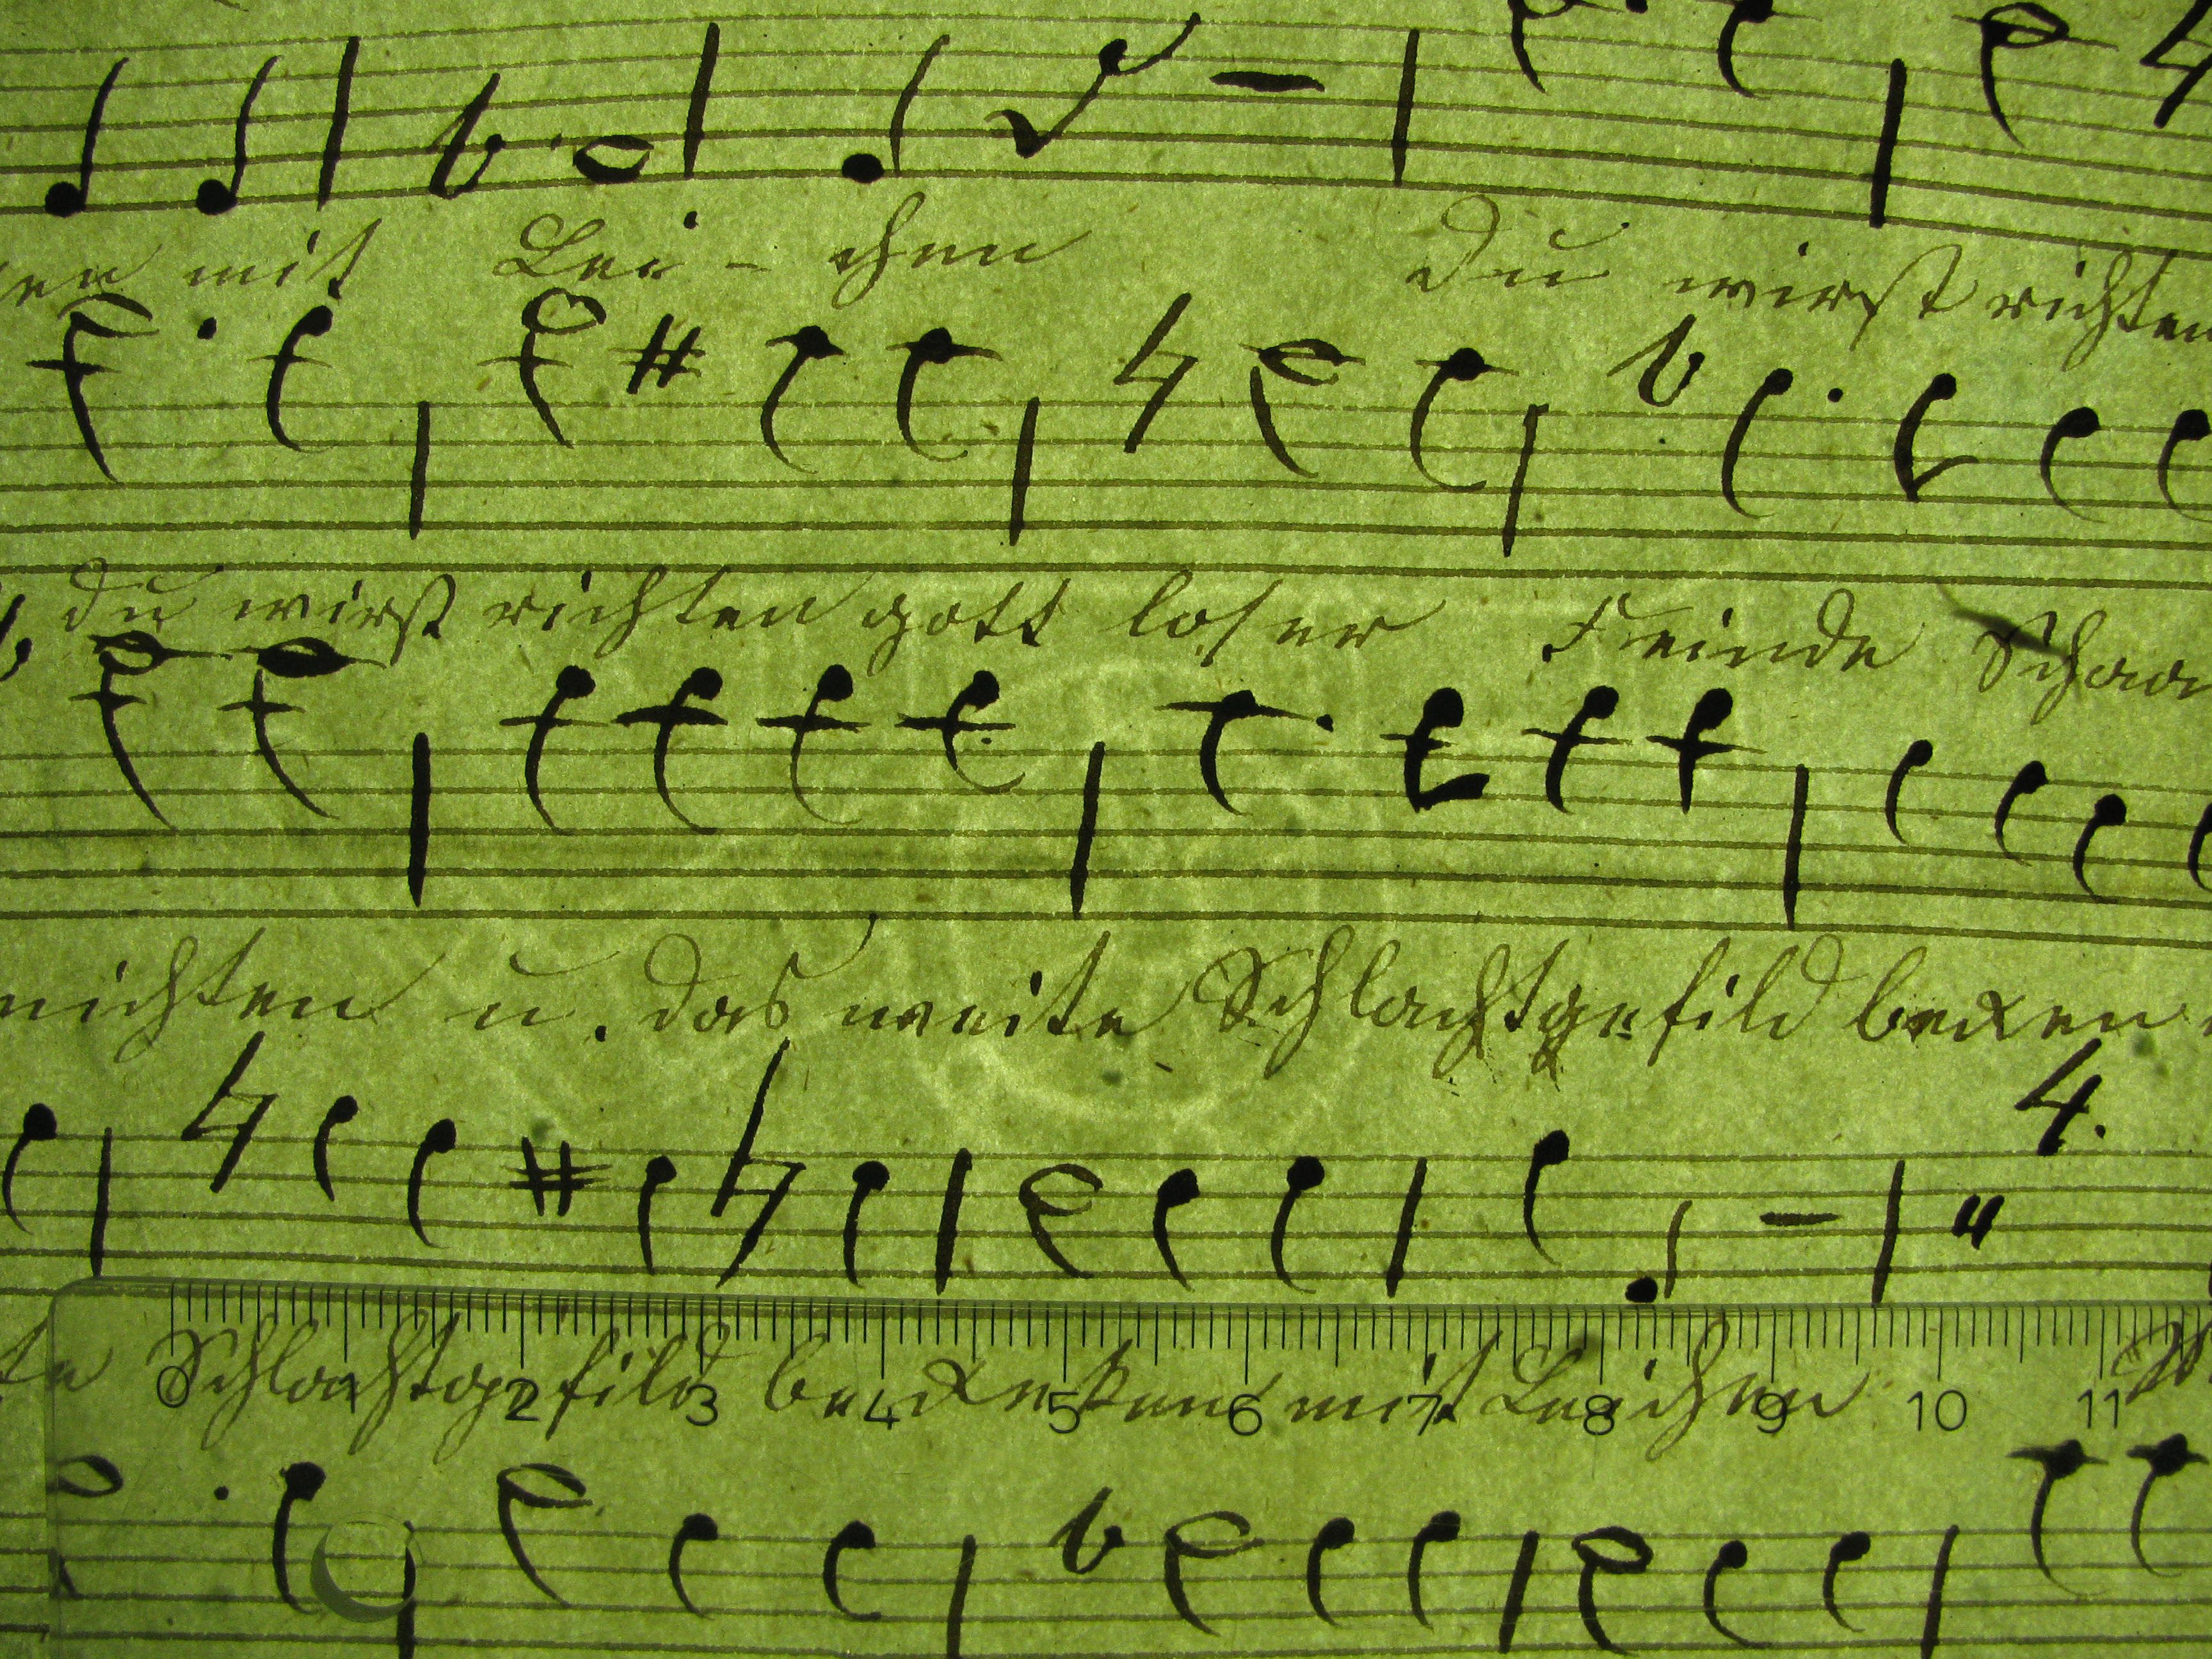 mit Lei - chen Du wirst richten
du wirst richten gott loser Feinde
nichten u. das weite Schlachtgefild decken
4.
Schlachtgefild mit Leichen
0 1 2 3 4 5 6 7 8 9 10 11